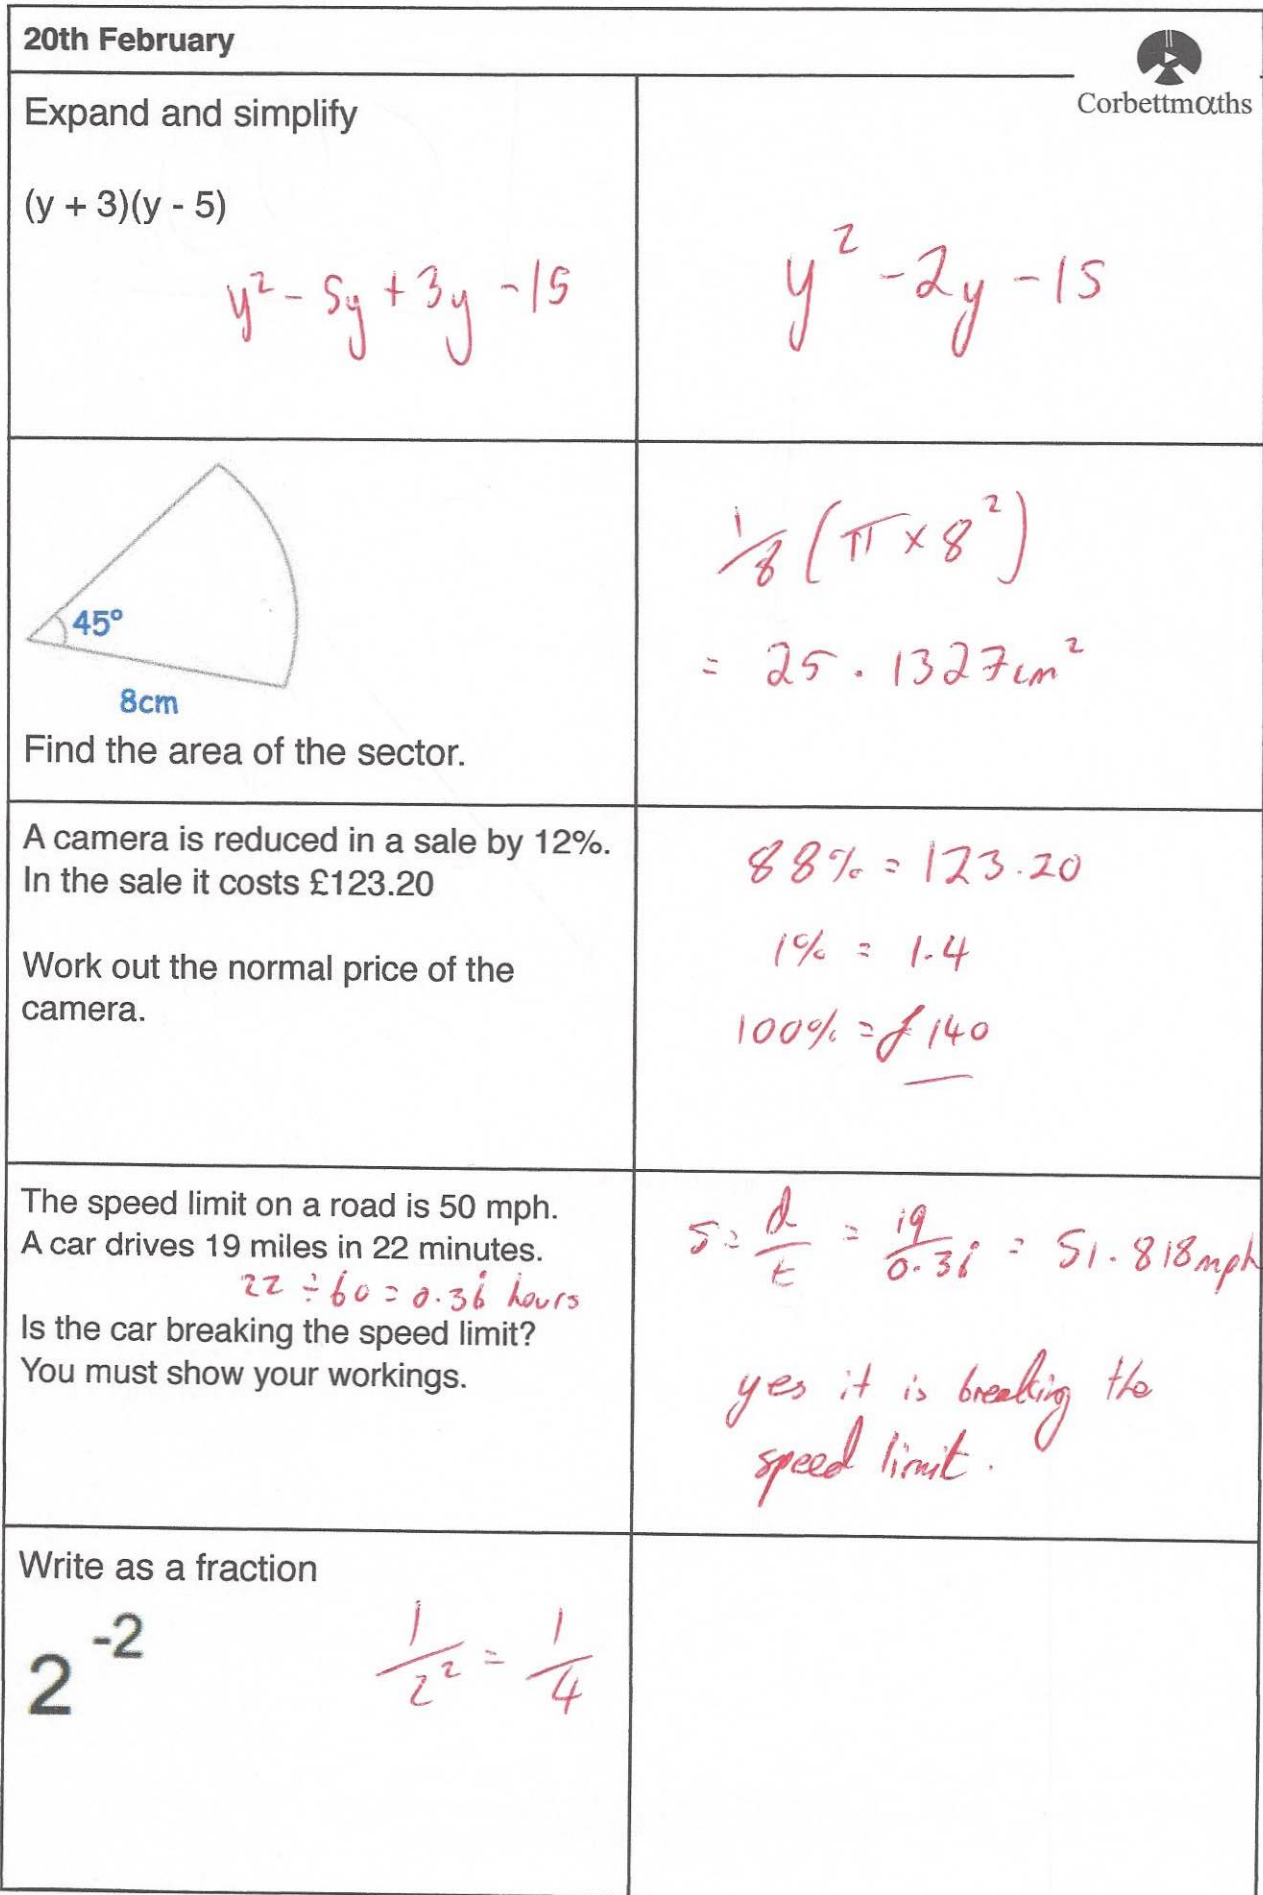 20th February
Corbettmαths
Expand and simplify
(y + 3)(y - 5)
y² - 5y + 3y - 15
y² - 2y - 15
45º
8cm
Find the area of the sector.
1/8 (π × 8²)
= 25.1327cm²
A camera is reduced in a sale by 12%.
In the sale it costs £123.20
Work out the normal price of the
camera.
88% = 123.20
1% = 1.4
100% = £140
The speed limit on a road is 50 mph.
A car drives 19 miles in 22 minutes.
22 ÷ 60 = 0.36̇ hours
Is the car breaking the speed limit?
You must show your workings.
s = d/t = 19/0.36̇ = 51.818mph
yes it is breaking the
speed limit.
Write as a fraction
2⁻²
1/2² = 1/4